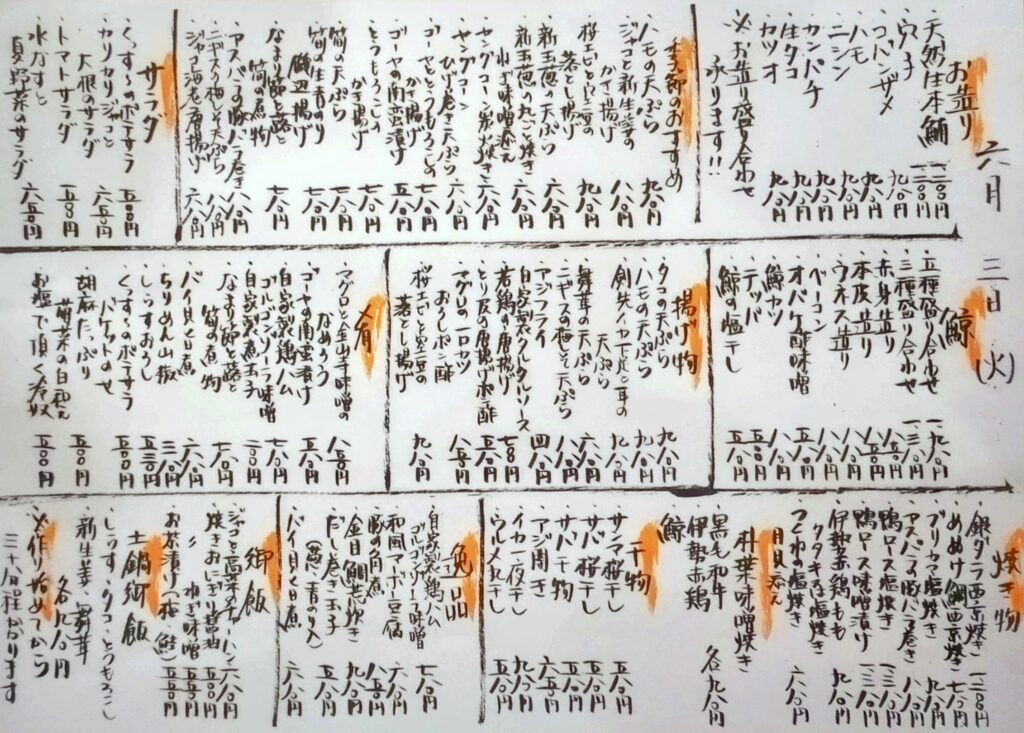 六月三日(火)
お造り
天然生本鮪 一二〇〇円
ウニ 一一〇〇円
コバンザメ 九八〇円
ハモ 九八〇円
ニシン 八八〇円
カンパチ 九八〇円
生タコ 九八〇円
カツオ 九八〇円
※お造り盛り合わせ
承ります!!
ハモの天ぷら 九八〇円
ジャコと新生姜の
かき揚げ 八八〇円
桜エビと空豆の
落とし揚げ 九八〇円
新玉葱の天ぷら 六八〇円
新玉葱の丸ごと焼き
ねぎ味噌添え 六八〇円
ヤングコーン炭火焼き 六八〇円
ヤングコーン
ひげ巻き天ぷら 六八〇円
ゴーヤととうもろこしの
かき揚げ 七八〇円
ゴーヤの南蛮漬け 五八〇円
とうもろこしの
かき揚げ 七八〇円
筍の天ぷら 七八〇円
筍の生青のり
磯辺揚げ 七八〇円
なまり節と蕗と
筍の煮物 七八〇円
アスパラの豚バラ巻き 八八〇円
ニギスの梅しそ天ぷら 八八〇円
ジャコ海老唐揚げ 六八〇円
サラダ
くんすーのポテサラ 五八〇円
カリカリジャコと
大根のサラダ 六五〇円
トマトサラダ 五八〇円
水なすと
夏野菜のサラダ 六五〇円
鯨
五種盛り合わせ
三種盛り合わせ
赤身造り 八八〇円
本皮造り
ウネス造り
ベーコン
オバケ酢味噌
鯨カツ
テッパ
鯨の塩干し 五八〇円
揚げ物
タコの天ぷら 九八〇円
ハモの天ぷら 九八〇円
天ぷら 九八〇円
舞茸の天ぷら 六八〇円
ニギスの梅しそ天ぷら 八八〇円
アジフライ
自家製タルタルソース
若鶏の唐揚げ 七八〇円
とり皮の唐揚げポン酢 五八〇円
マグロの一口カツ
おろしポン酢 八五〇円
桜エビと空豆の
落とし揚げ 九八〇円
肴
マグロと金山寺味噌の
なめろう 八五〇円
ゴーヤの南蛮漬け 五八〇円
自家製鶏ハム
ゴルゴンゾーラ味噌 七八〇円
自家製くん玉子
なまり節と蕗と
筍の煮物 七八〇円
バイ貝旨煮 六八〇円
ちりめん山椒
しらすおろし
くんすーのポテサラ
バケットのせ 五〇〇円
胡麻たっぷり
菊菜の白和え 五〇〇円
お塩で頂く冷奴 五〇〇円
焼き物
銀ダラ西京焼き 一二〇〇円
めぬけ鯛西京焼き 七八〇円
ブリカマ塩焼き 九八〇円
アスパラの豚バラ巻き 八八〇円
鴨ロース塩焼き
鴨ロース味噌漬け
伊勢赤鶏もも
タタキ又は塩焼き 九八〇円
つくねの塩焼き 六八〇円
朴葉味噌焼き
黒毛和牛
伊勢赤鶏
鯨 各九八〇円
干物
サンマ桜干し 五八〇円
サバ桜干し 五八〇円
サバ干物 五八〇円
アジ開き 六五〇円
イカ一夜干し 九八〇円
ウルメ丸干し 五八〇円
逸品
自家製鶏ハム
ゴルゴンゾーラ味噌 七八〇円
和風マーボー豆腐 六八〇円
豚の角煮 八五〇円
金目鯛荒炊き 九八〇円
だし巻き玉子 五八〇円
(葱・青のり入)
バイ貝旨煮 六八〇円
御飯
ジャコと高菜のチャーハン 六八〇円
焼きおにぎり醤油 五〇〇円
〃 ねぎ味噌 五五〇円
お茶漬け(梅・鮭) 五五〇円
土鍋御飯
しらす・タコ・とうもろこし
新生姜・舞茸
各九八〇円
※作り始めてから
三十八分程かかります